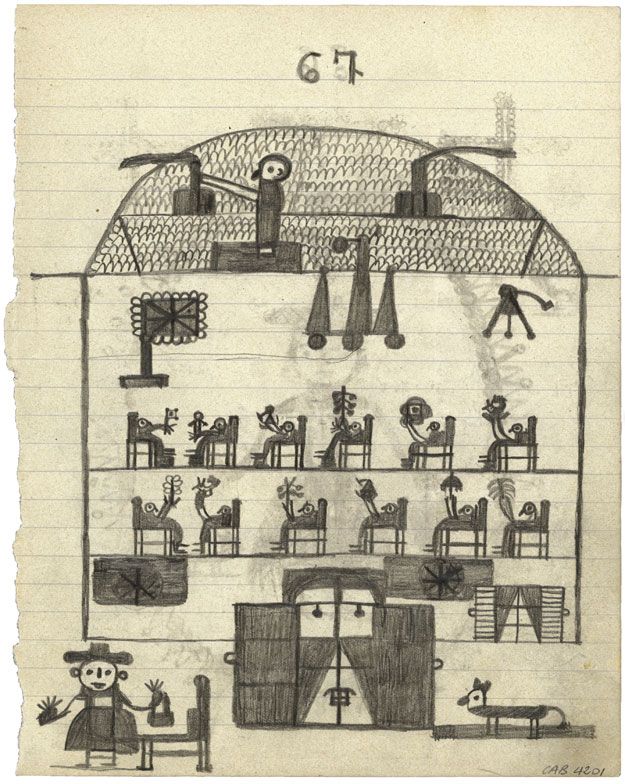 67
CAB 4201